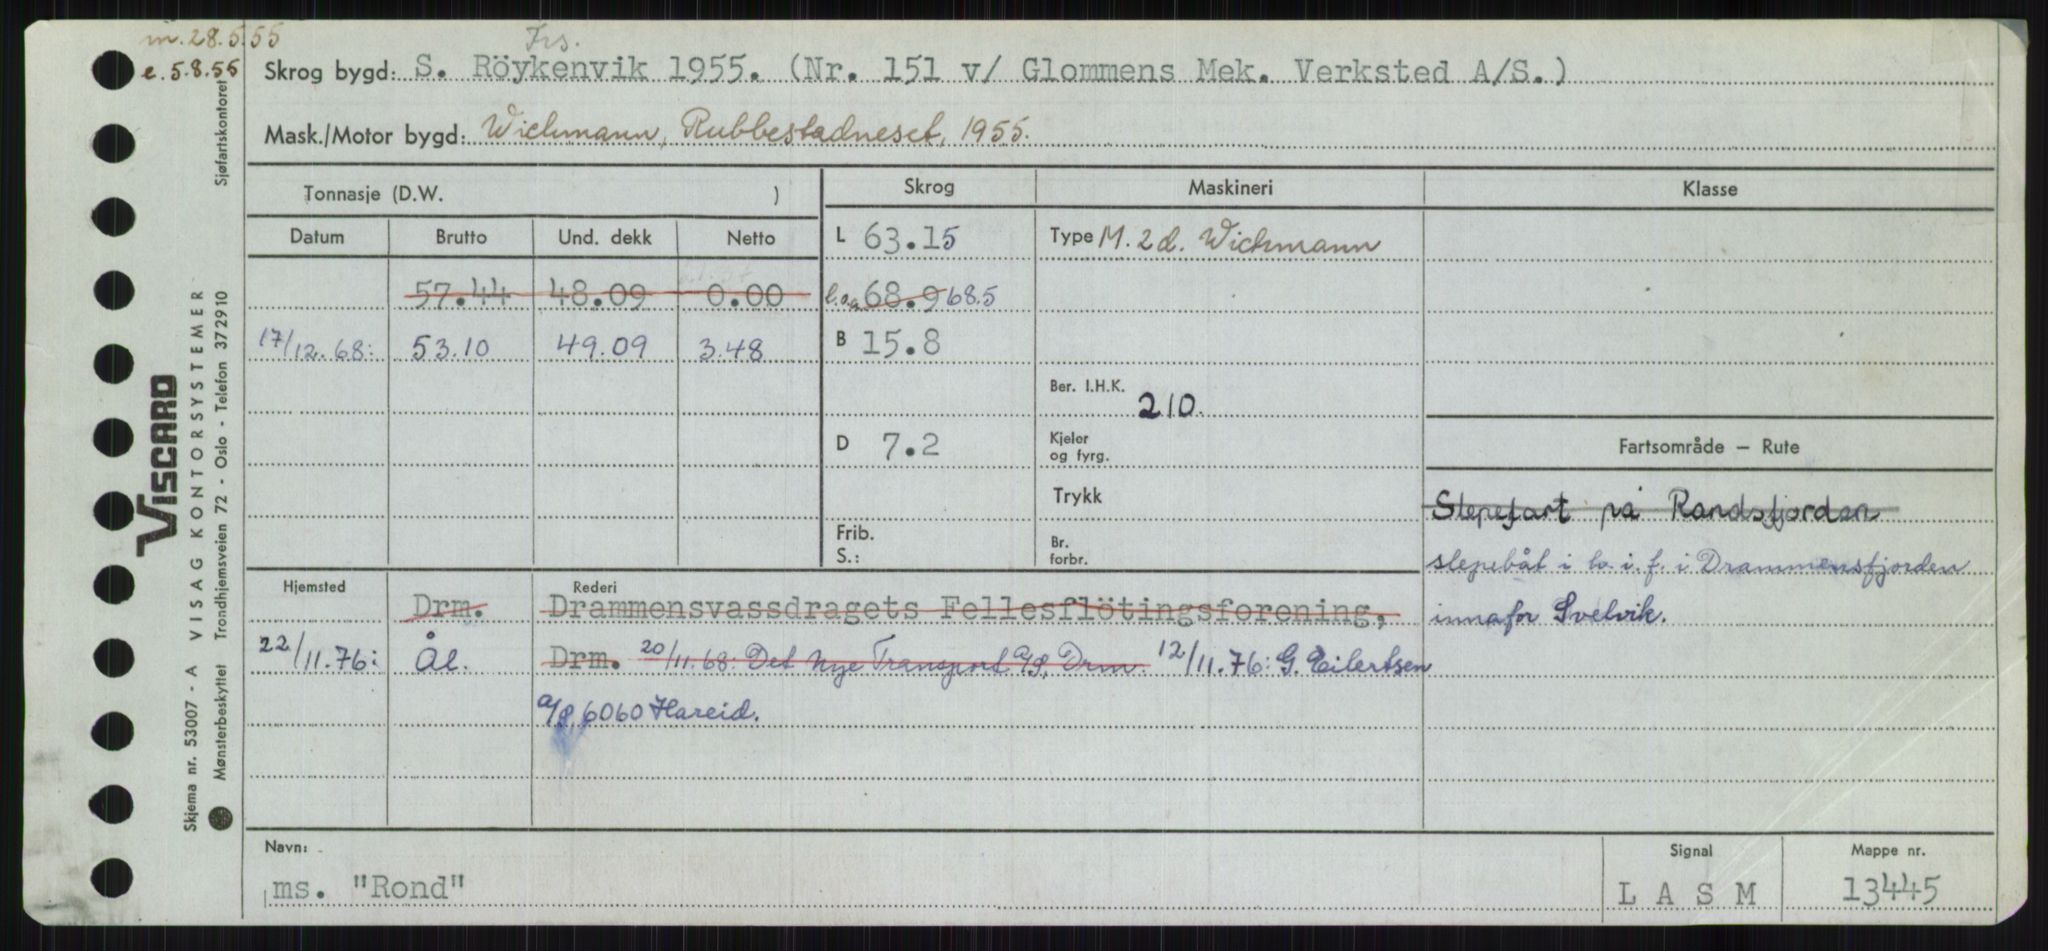 m. 28.5.55
e. 5.8.55
Frs.
Skrog bygd: S. Röykenvik 1955. (Nr. 151 v/ Glommens Mek. Verksted A/S.)
Mask./Motor bygd: Wichmann, Rubbestadneset, 1955.
Tonnasje (D.W. )
Skrog Maskineri Klasse
Datum Brutto Und. dekk Netto
L 63.15
Type M. 2 d. Wichmann
57.44 48.09 0.00
l.o.a 68.9 68.5
17/12.68: 53.10 49.09 3.48
B 15.8
Ber. I.H.K. 210.
D 7.2
Kjeler
og fyrg.
Fartsområde – Rute
Trykk
Slepefart på Randsfjorden
Frib.
S.:
Br.
forbr.
slepebåt i lo. i. f. i Drammensfjorden
innafor Svelvik.
Hjemsted Rederi
Drm. Drammensvassdragets Fellesflötingsforening,
22/11.76: Ål. Drm. 20/11.68: Det Nye Transport A/S, Drm. 12/11.76: G. Eilertsen
A/S, 6060 Hareid.
Navn: Signal Mappe nr.
ms. "Rond" L A S M 13445
VISCARD
Skjema nr. 53007 - A VISAG KONTORSYSTEMER
Mønsterbeskyttet Trondhjemsveien 72 - Oslo - Telefon 372910 Sjøfartskontoret